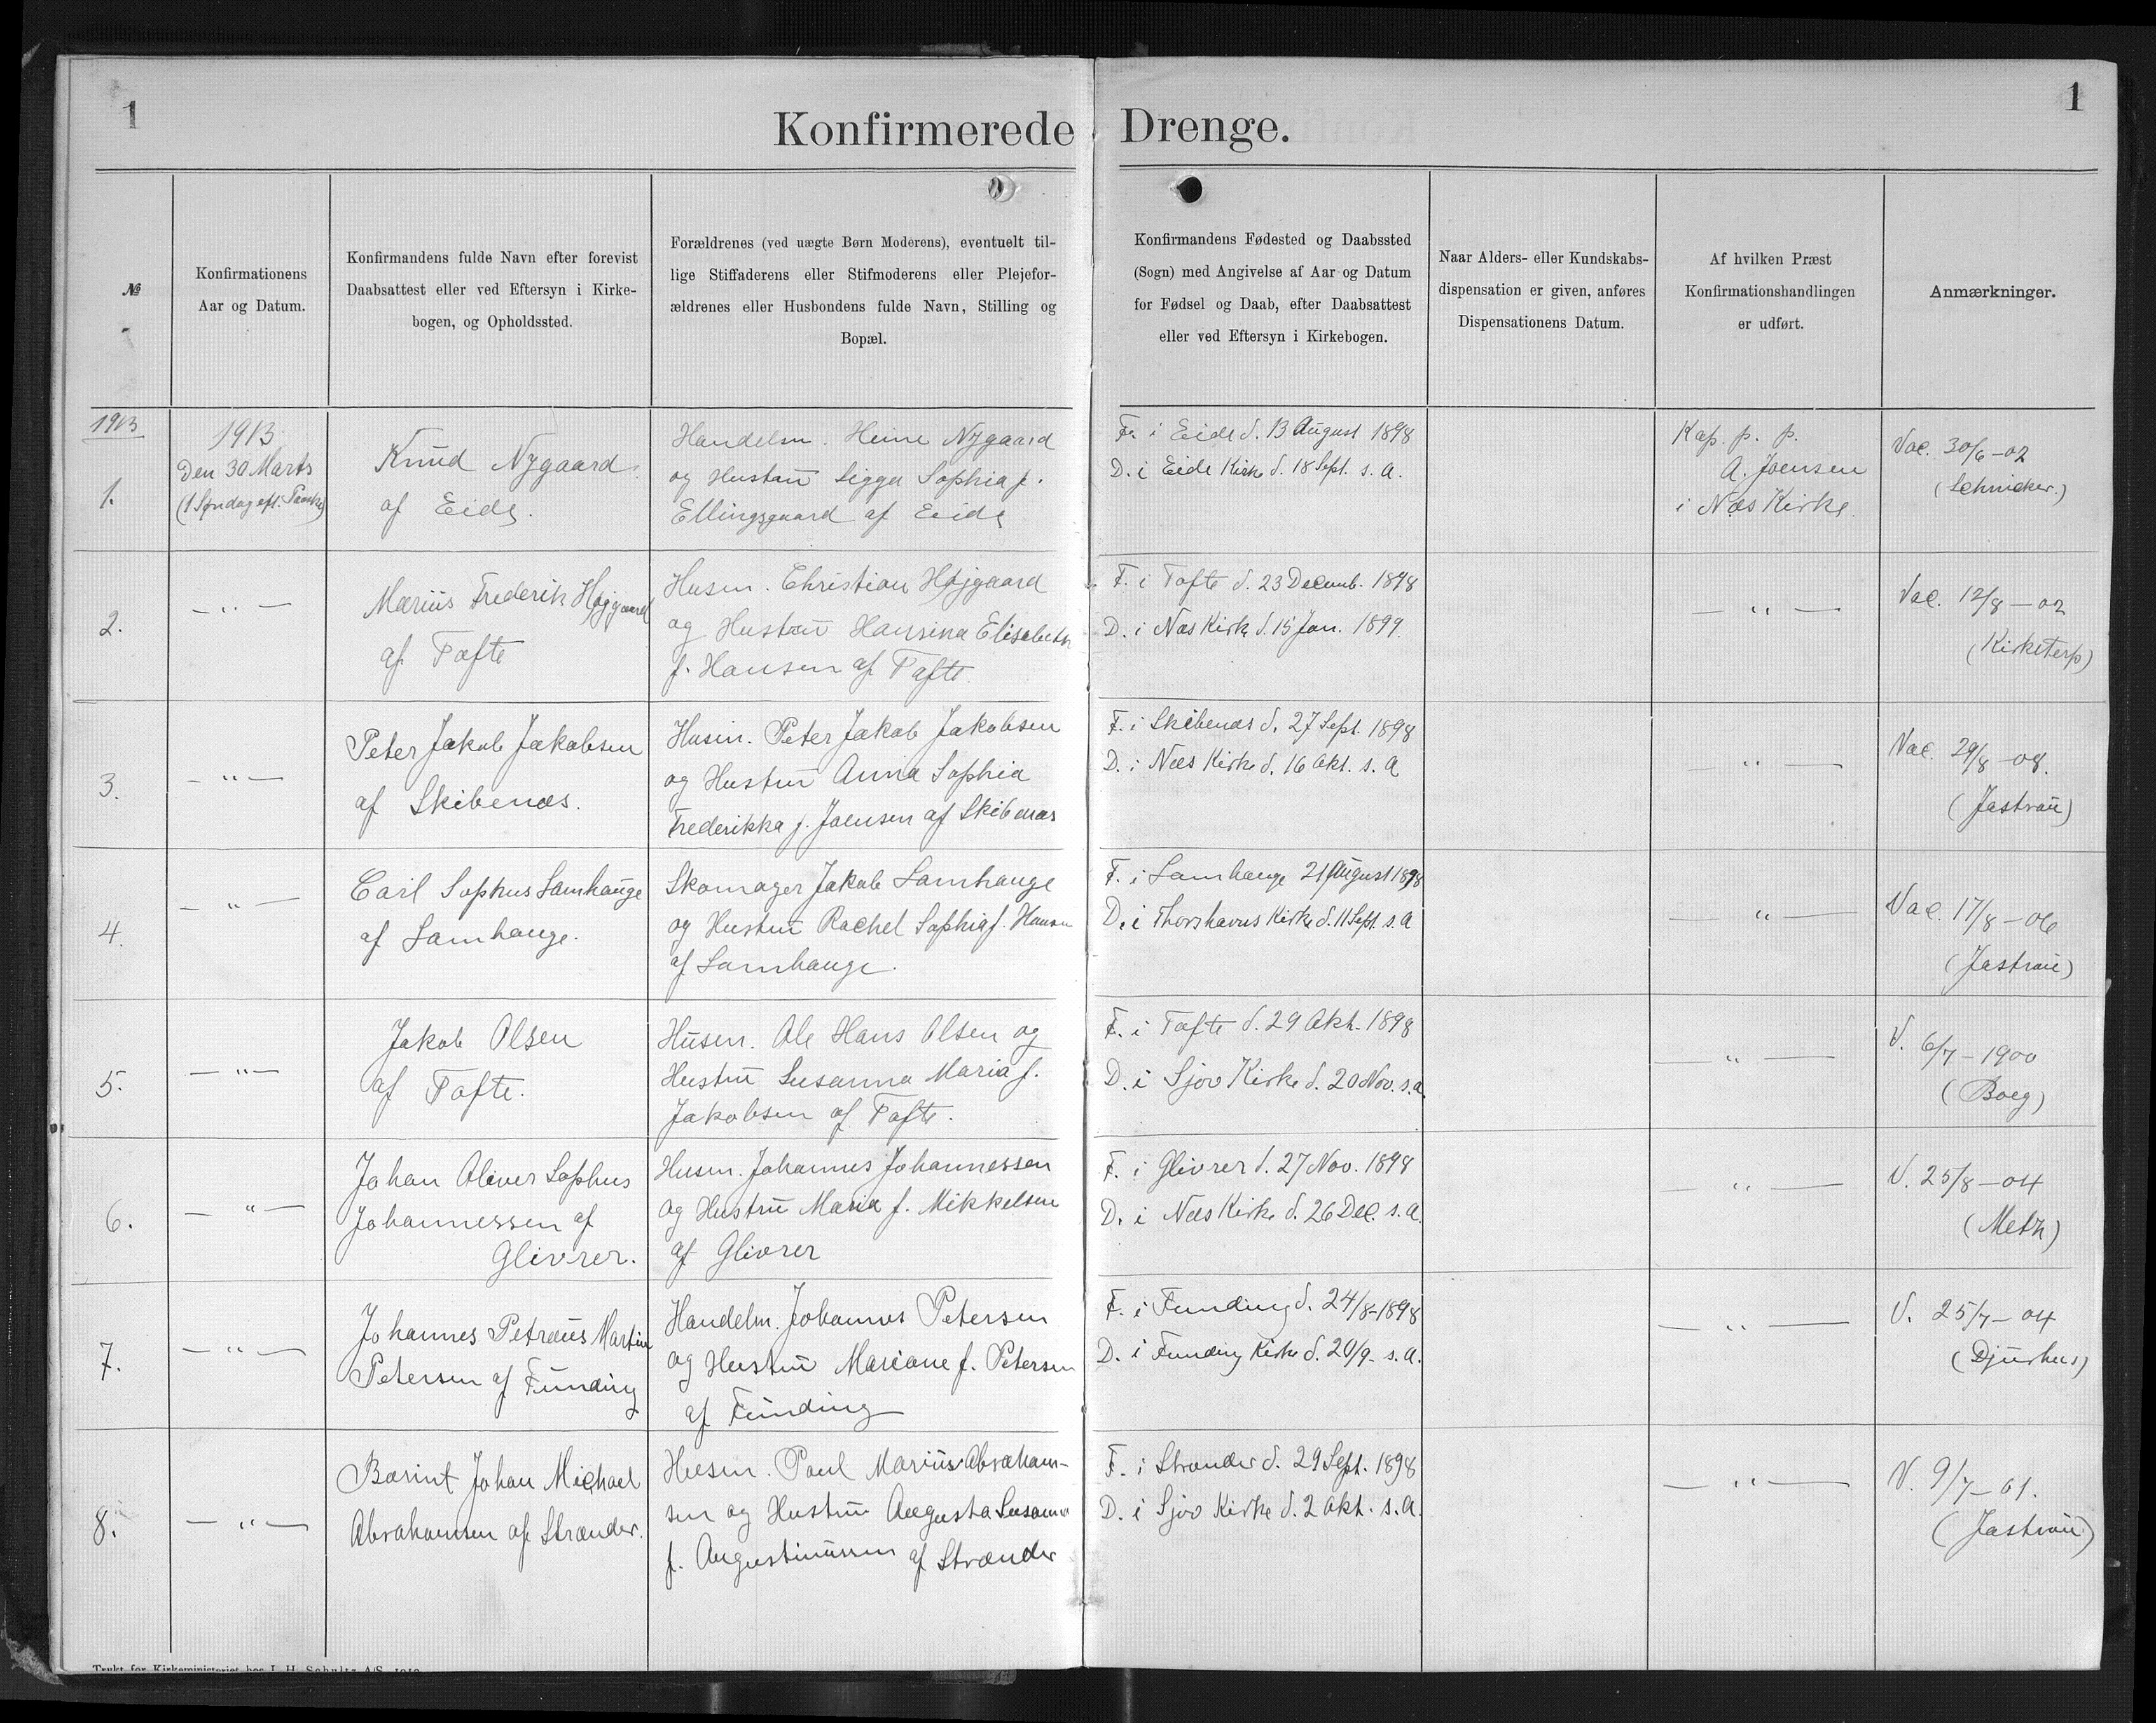 1
1
Konfirmerede Drenge.
№
Konfirmationens
Aar og Datum.
Konfirmandens fulde Navn efter forevist
Daabsattest eller ved Eftersyn i Kirke-
bogen, og Opholdssted.
Forældrenes (ved uægte Børn Moderens), eventuelt til-
lige Stiffaderens eller Stifmoderens eller Plejefor-
ældrenes eller Husbondens fulde Navn, Stilling og
Bopæl.
Konfirmandens Fødested og Daabssted
(Sogn) med Angivelse af Aar og Datum
for Fødsel og Daab, efter Daabsattest
eller ved Eftersyn i Kirkebogen.
Naar Alders- eller Kundskabs-
dispensation er given, anføres
Dispensationens Datum.
Af hvilken Præst
Konfirmationshandlingen
er udført.
Anmærkninger.
1913
1.
1913
Den 30 Marts
(1 Søndag eft. Paaske)
Knud Nygaard
af Eide.
Handelsm. Heine Nygaard
og Hustru Sigga Sophia f.
Ellingsgaard af Eide
F. i Eide d. 13 August 1898
D. i Eide Kirke d. 18 Sept. s. A.
Kap. p. p.
A. Joensen
i Næs Kirke.
Vac. 30/6 – 02
(Schmicker.)
2.
— " —
Marius Frederik Højgaard
af Tofte
Husm. Christian Højgaard
og Hustru Hansina Elisabeth
f. Hansen af Tofte.
F. i Tofte d. 23 Decemb. 1898
D. i Næs Kirke d. 15 Jan. 1899.
— " —
Vac. 12/8 – 02
(Kirketerp)
3.
— " —
Peter Jakob Jakobsen
af Skibenæs.
Husm. Peter Jakob Jakobsen
og Hustru Anna Sophia
Frederikka f. Joensen af Skibenæs
F. i Skibenæs d. 27 Sept. 1898
D. i Næs Kirke d. 16 Okt. s. A
— " —
Vac. 29/8 – 08.
(Jastrau)
4.
— " —
Carl Sophus Lamhauge
af Lamhauge.
Skomager Jakob Lamhauge
og Hustru Rachel Sophia f. Hansen
af Lamhauge.
F. i Lamhauge 21 August 1898
D. i Thorshavns Kirke d. 11 Sept. s. A
— " —
Vac. 17/8 – 06
(Jastrau)
5.
— " —
Jakob Olsen
af Tofte.
Husm. Ole Hans Olsen og
Hustru Susanna Maria f.
Jakobsen af Tofte.
F. i Tofte d. 29 Okt. 1898
D. i Sjov Kirke d. 20 Nov. s. a.
— " —
V. 6/7 – 1900
(Boeg)
6.
— " —
Johan Oliver Sophus
Johannessen af
Glivrer.
Husm. Johannes Johannessen
og Hustru Maria f. Mikkelsen
af Glivrer
F. i Glivrer d. 27 Nov. 1898
D. i Næs Kirke d. 26 Dec. s. a.
— " —
V. 25/8 – 04
(Metz)
7.
— " —
Johannes Petræus Martin
Petersen af Funding
Handelm. Johannes Petersen
og Hustru Mariane f. Petersen
af Funding
F. i Funding d. 24/8 – 1898
D. i Funding Kirke d. 20/9 – s. a.
— " —
V. 25/7 – 04
(Djurhus)
8.
— " —
Barint Johan Michael
Abrahamsen af Strænder.
Husm. Poul Marius Abraham-
sen og Hustru Augusta Susanna
f. Augustinussen af Strænder
F. i Strænder d. 29 Sept. 1898
D. i Sjov Kirke d. 2 Okt. s. A.
— " —
V. 9/7 – 01.
(Jastrau)